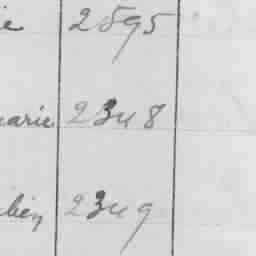 ie 2595
narie 2348
bien 2349